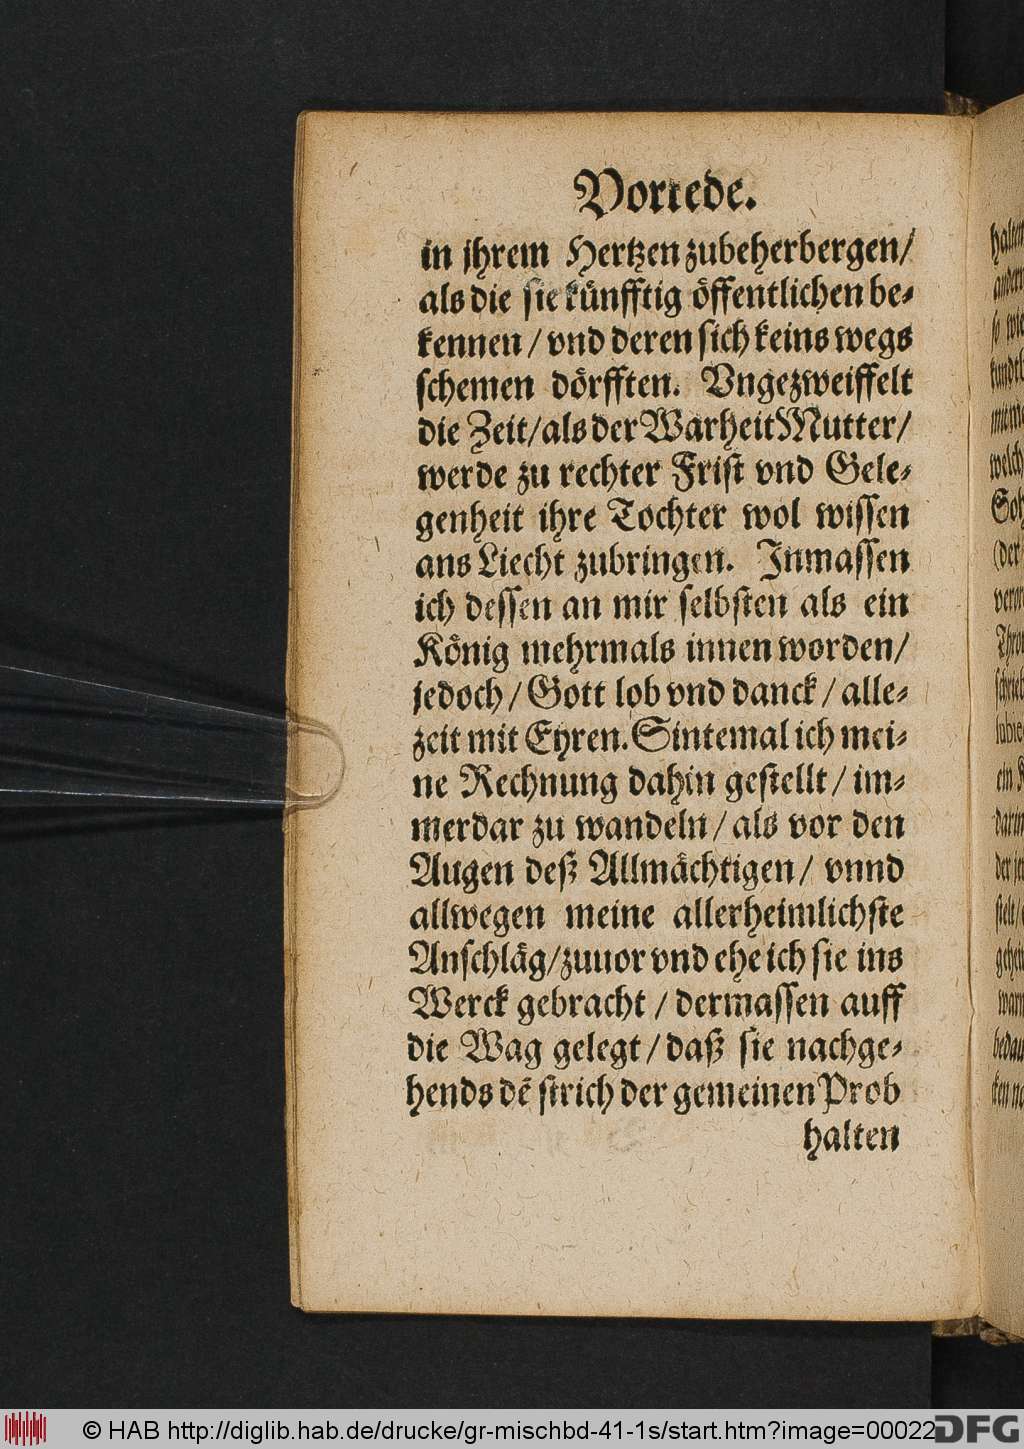 Vorrede.
in jhrem Hertzen zubeherbergen/
als die sie künfftig öffentlichen be⸗
kennen / vnd deren sich keins wegs
schemen dörfften. Vngezweiffelt
die Zeit/als der Warheit Mutter/
werde zu rechter Frist vnd Gele⸗
genheit ihre Tochter wol wissen
ans Liecht zubringen. Inmassen
ich dessen an mir selbsten als ein
König mehrmals innen worden/
jedoch / Gott lob vnd danck / alle⸗
zeit mit Eyren. Sintemal ich mei⸗
ne Rechnung dahin gestellt / im⸗
merdar zu wandeln / als vor den
Augen deß Allmächtigen / vnnd
allwegen meine allerheimlichste
Anschläg/zuuor vnd ehe ich sie ins
Werck gebracht / dermassen auff
die Wag gelegt / daß sie nachge⸗
hends dē strich der gemeinen Prob
halten
© HAB http://diglib.hab.de/drucke/gr-mischbd-41-1s/start.htm?image=00022
DFG